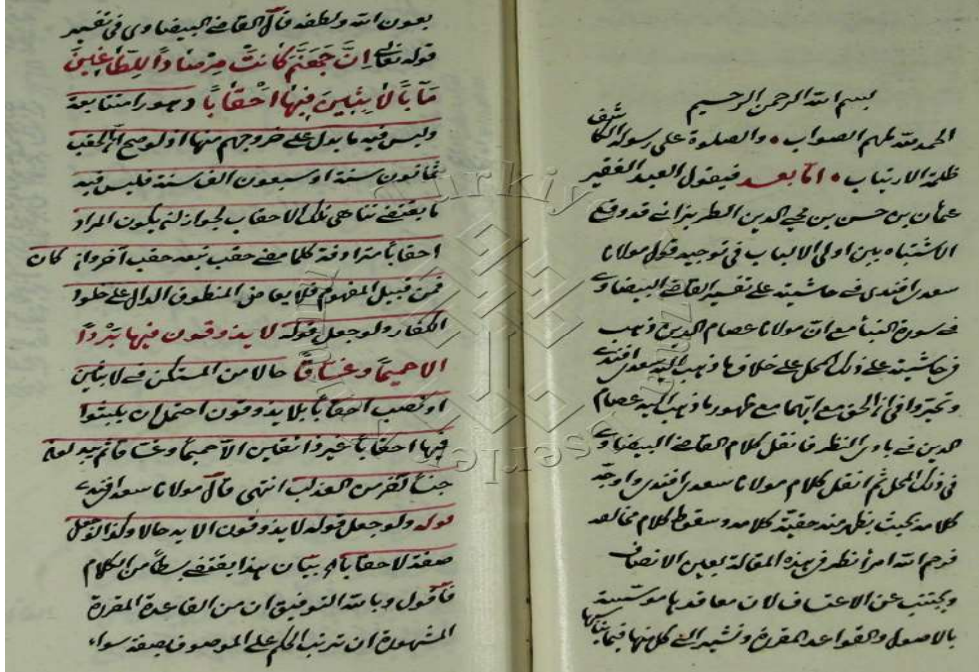 بسم الله الرحمن الرحيم
الحمد لله ملهم الصواب • والصلوة على رسوله الكاشف
ظلمة الارتياب • اما بعد فيقول العبد الفقير
عثمان بن حسن بن محيي الدين الطربزاني قد وقع
الاشتباه بين اولي الالباب في توجيه قول مولانا
سعدي افندي في حاشيته على تفسير القاضي البيضاوي
في سورة النبأ مع ان مولانا عصام الدين ذهب
في حاشيته على ذلك المحل على خلاف ما ذهب اليه سعدي افندي
وتحيروا في ان الحق مع ايهما مع ظهور ما ذهب اليه عصام
الدين في بادي النظر فانقل كلام القاضي البيضاوي
في ذلك المحل ثم انقل كلام مولانا سعدي افندي واوجه
كلامه بحيث يظهر منه حقية كلامه وسقوط كلام مخالفه
فرحم الله امرأ نظر في هذه المقالة بعين الانصاف
ويجتنب عن الاعتساف لان معاقدها موسسة
بالاصول والقواعد المقررة ونشير الى كل منها فيما يشابهها
بعون الله ولطفه قال القاضي البيضاوي في تفسير
قوله تعالى إن جهنم كانت مرصادا للطاغين
مآبا لابثين فيها احقابا دهورا متتابعة
وليس فيه ما يدل على خروجهم منها اذ لو صح ان الحقب
ثمانون سنة او سبعون الف سنة فليس فيه
ما يقتضي تناهي تلك الاحقاب لجواز ان يكون المراد
احقابا مترادفة كلما مضى حقب تبعه حقب آخر وان كان
فمن قبيل المفهوم فلا يعارض المنطوق الدال على خلود
الكفار ولو جعل قوله لا يذوقون فيها بردا
الا حميما وغساقا حالا من المستكن في لابثين
او نصب احقابا بلا يذوقون احتمل ان يلبثوا
فيها احقابا غير ذائقين الا حميما وغساقا ثم يبدلون
جنسا آخر من العذاب انتهى قال مولانا سعدي افندي
قوله ولو جعل قوله لا يذوقون الاية حالا وكذا لو جعل
صفة لاحقابا بيان هذا يقتضي بسطا من الكلام
فاقول وبالله التوفيق ان من القاعدة المقررة
المشهورة ان ترتب الحكم على الموصوف بصفة سواء